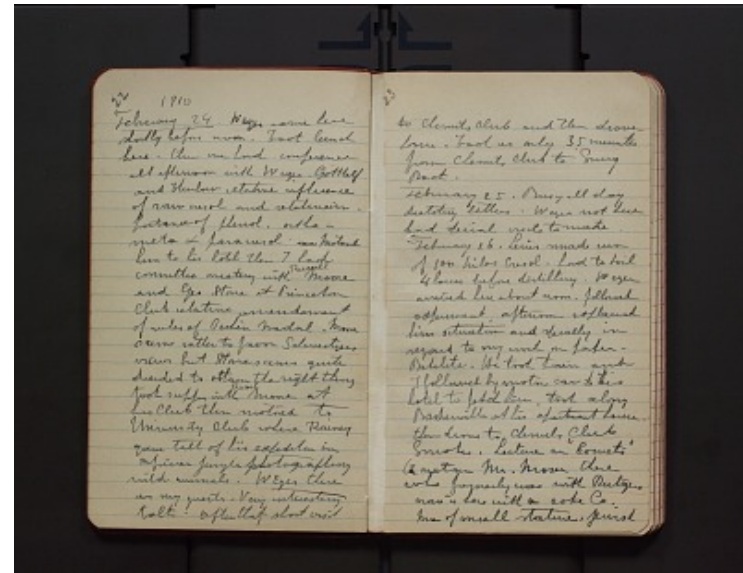 22
1910
February 24. Weger came here
shortly before noon. Took lunch
here. Then we had conference
all afternoon with Weger Gottlieb
and relative influence
of raw cresol and relative im-
portance of phenol, ortho -
meta & paracresol.
him to his hotel then 7
committee meeting with Russell Moore
and Geo Stone at Princeton
Club relative amendment
of rules of Nichols Medal. Moore
seems rather to favor
views but Stone seems quite
decided to the right thing
Took supper with Moore at
his Club then motored to
University Club where Rainey
gave talk of his expedition in
African jungle photographing
wild animals. Weger there
as my guest. Very interesting
talk. After that short visit
23
to Chemists Club and then drove
home. Took us only 35 minutes
from Chemists Club to Snug
Rock.
February 25. Busy all day
dictating letters. Weger not here
had social visits to make.
February 26. made run
of 500 kilos Cresol. Had to boil
4 hours before distilling. Weger
arrived here about noon, followed
experiment, afternoon explained
him situation and specially in
regard to my work on paper -
Bakelite. He took train and
I followed by motor car to his
hotel to fetch him, took along
Baskerville at his apartment house,
then drove to Chemists Club
Smoker. Lecture on "Comets"
met a Mr. Moser there
who formerly was with Rutgers
now is here with a coke Co.
Man of small stature, jewish